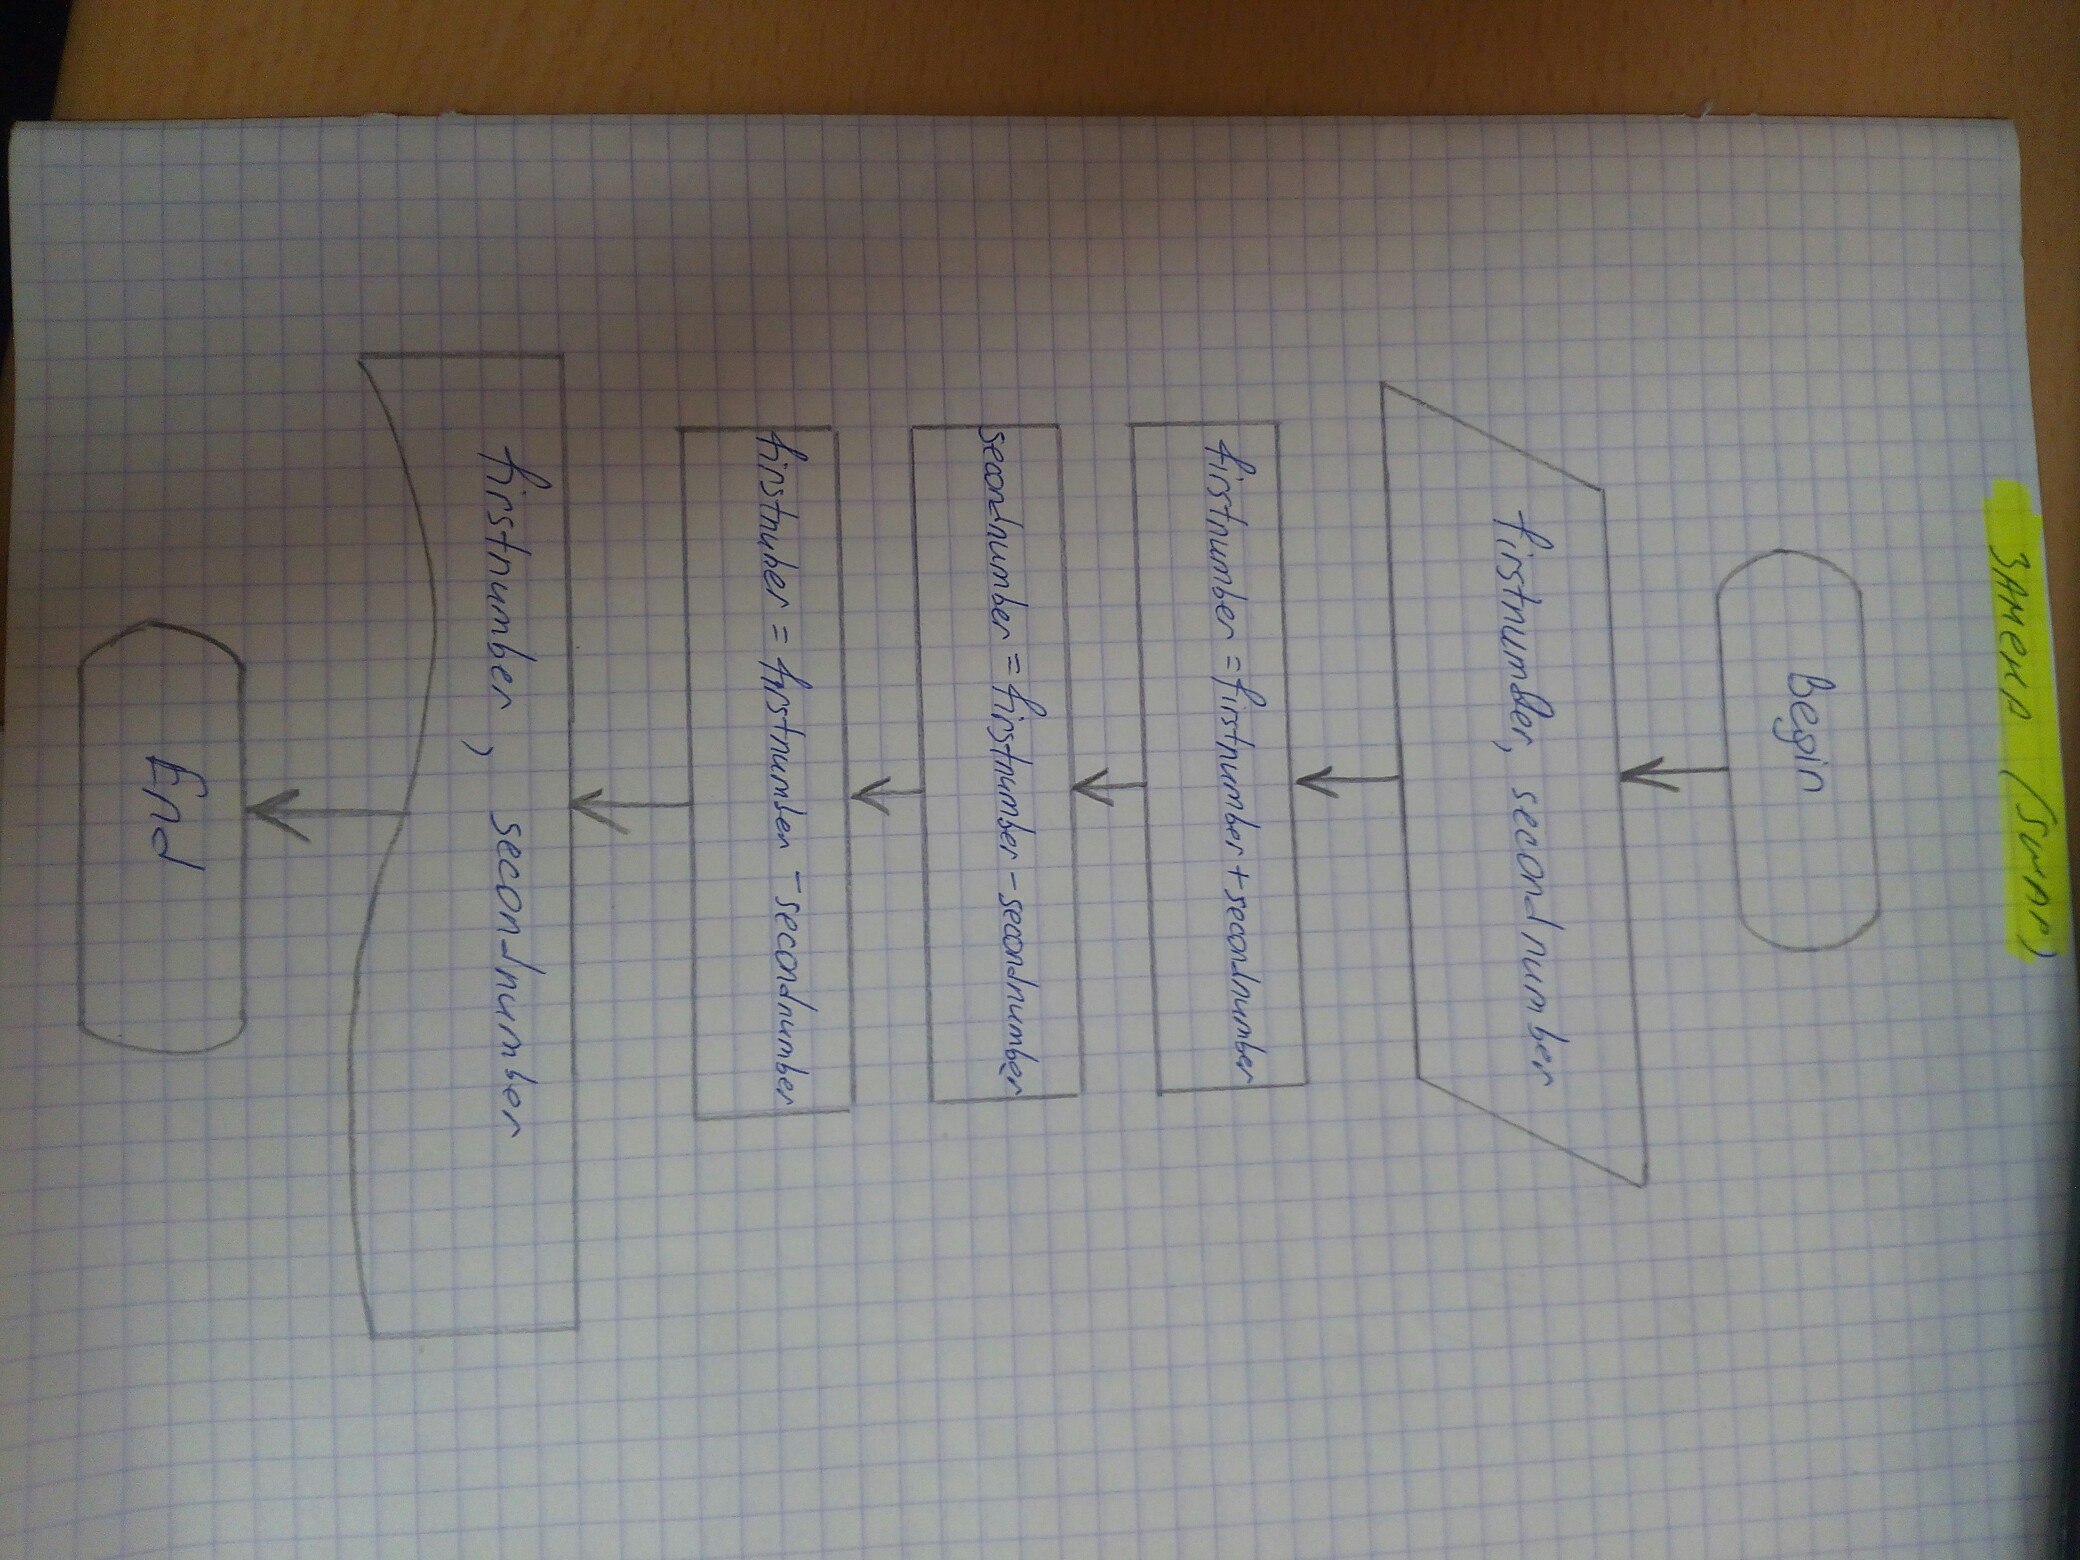 ЗАМЕНА (SWAP)
Begin
firstnumber, secondnumber
firstnumber = firstnumber + secondnumber
secondnumber = firstnumber - secondnumber
firstnuber = firstnumber - secondnumber
firstnumber, secondnumber
End